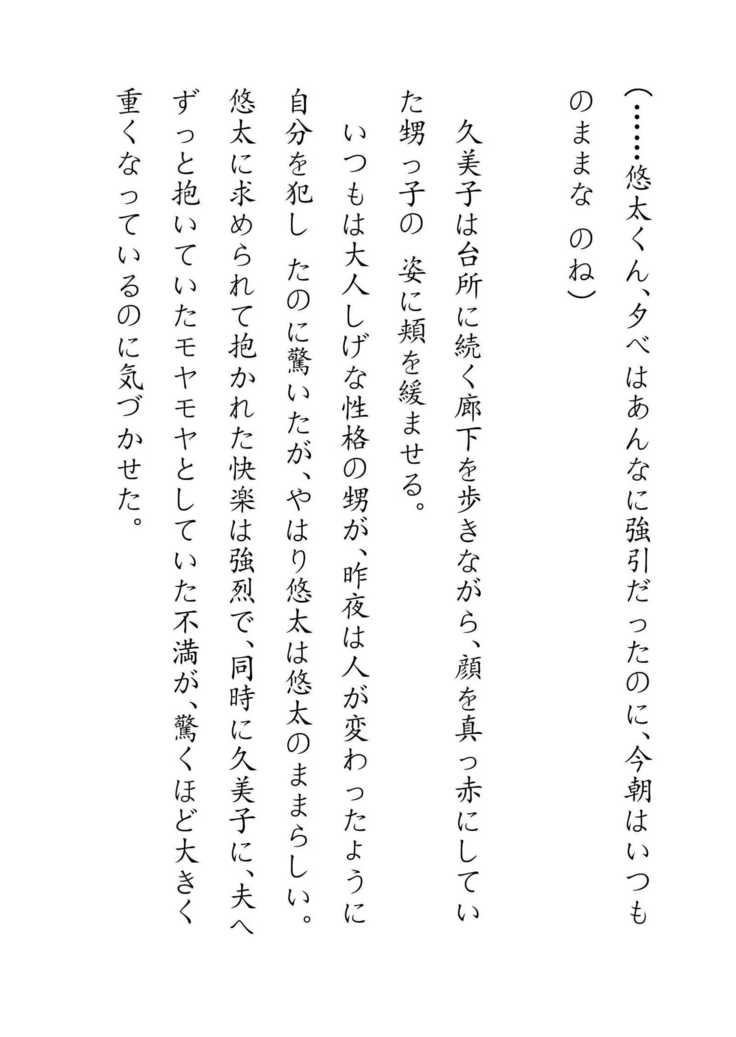 (……悠太くん、夕べはあんなに強引だったのに、今朝はいつも
のままな のね)
久美子は台所に続く廊下を歩きながら、顔を真っ赤にしてい
た甥っ子の 姿に頬を緩ませる。
いつもは大人しげな性格の甥が、昨夜は人が変わったように
自分を犯し たのに驚いたが、やはり悠太は悠太のままらしい。
悠太に求められて抱かれた快楽は強烈で、同時に久美子に、夫へ
ずっと抱いていたモヤモヤとしていた不満が、驚くほど大きく
重くなっているのに気づかせた。